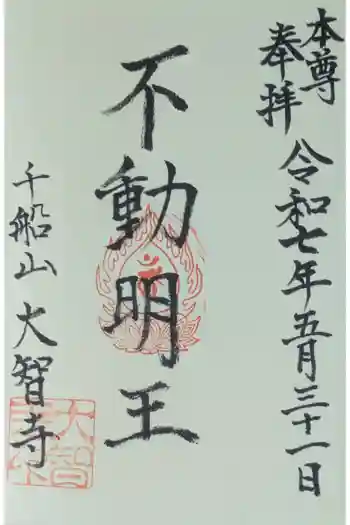 本尊
奉拝
令和七年五月三十一日
不動明王
千船山大智寺